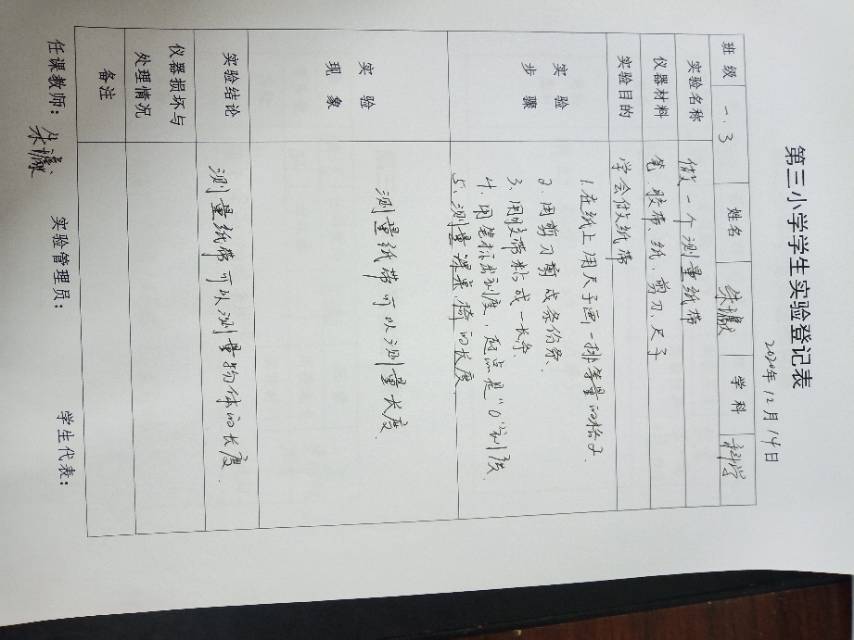 第三小学学生实验登记表
2020年12月14日
班级 一.3 姓名 朱 学科 科学
实验名称 做一个测量纸带
仪器材料 笔、胶带、纸、剪刀、尺子
实验目的 学会做纸带
实验步骤
1.在纸上用尺子画一排等量的格子.
2.用剪刀剪成条
3.用胶带粘成一长条.
4.用笔标出刻度,起点是“0”刻度
5、测量课桌、椅的长度
实验现象 测量纸带可以测量长度.
实验结论 测量纸带可以测量物体的长度.
仪器损坏与处理情况
备注
任课教师:朱 实验管理员: 学生代表: